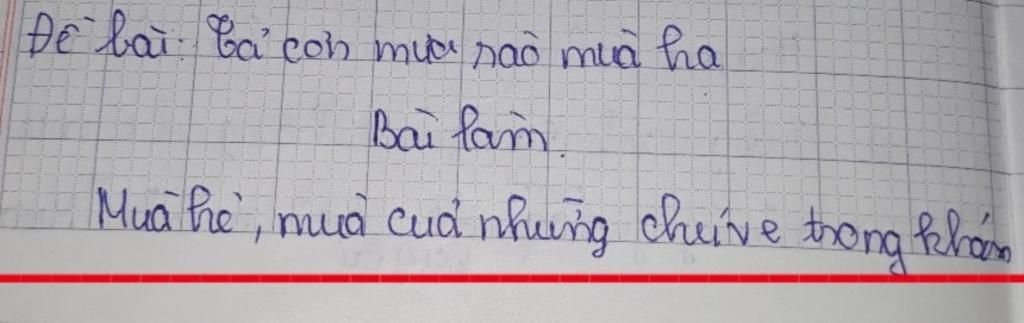 Đề bài: Tả cơn mưa rào mùa hạ
Bài làm.
Mùa hè, mùa của những chú ve trong khóm